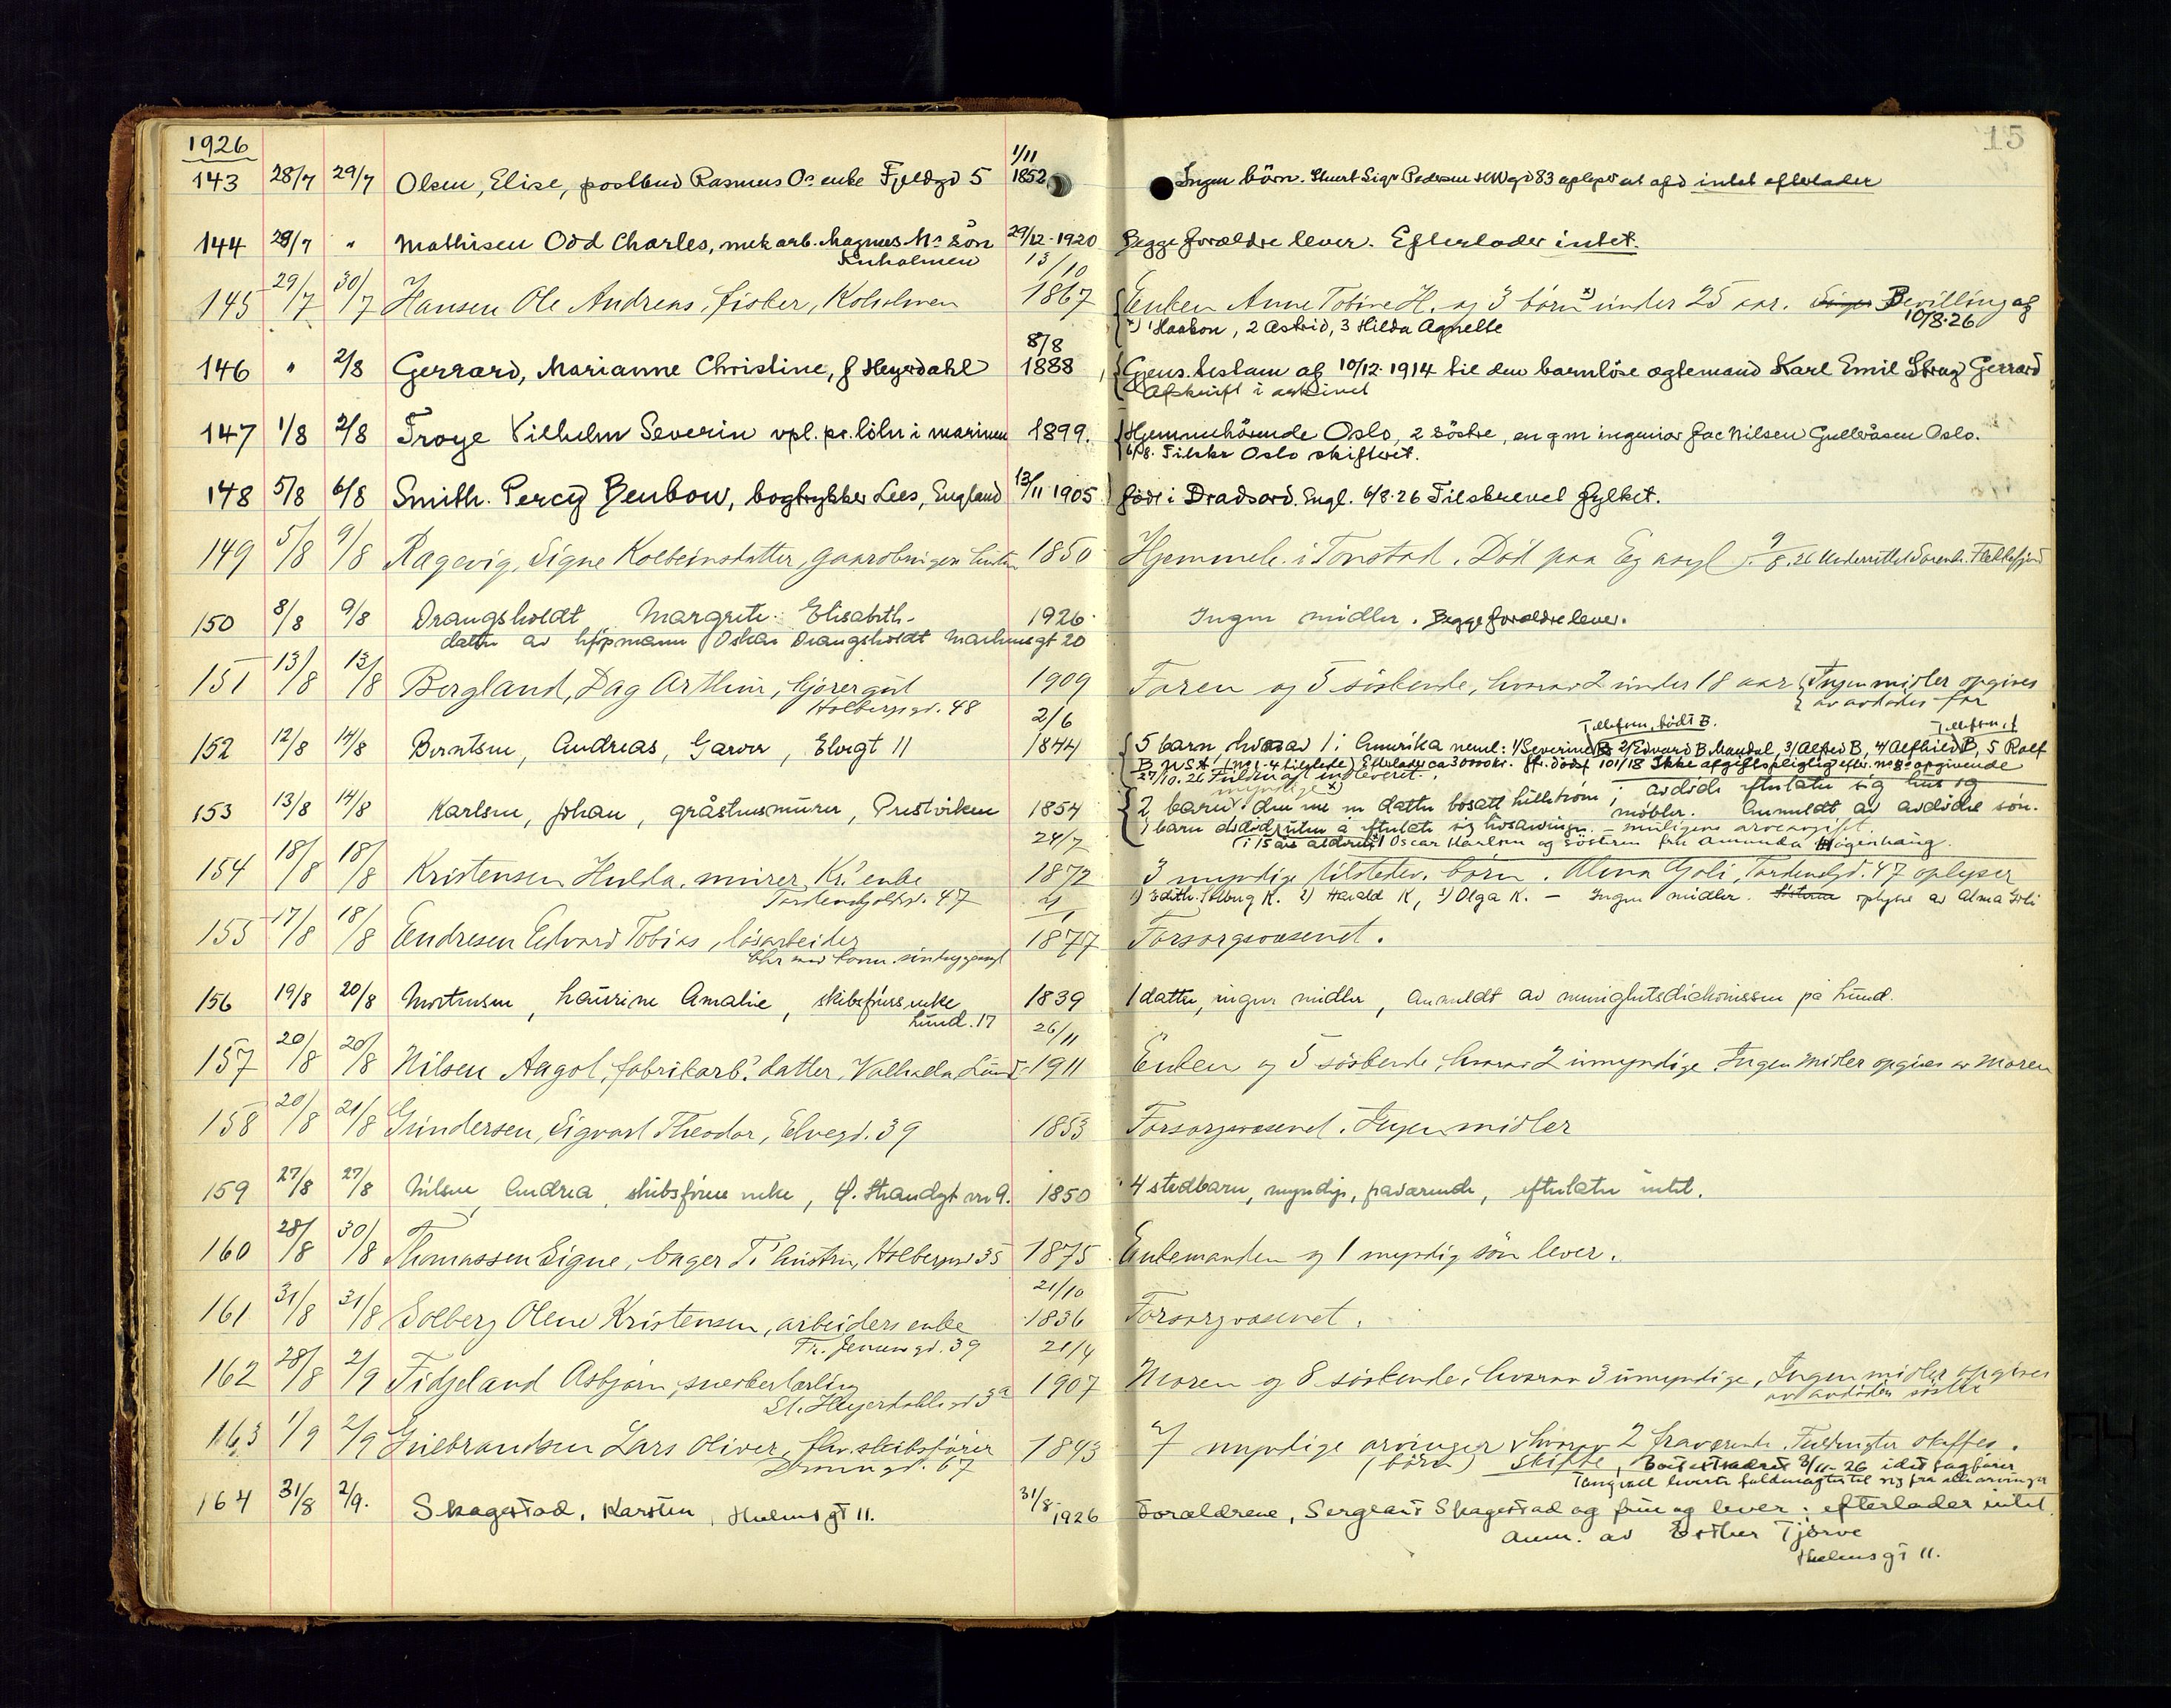 15
1926
143 28/7 29/7 Olsen, Elise, postbud Rasmus Os enke Fjeldgd 5 1/11 1852 Ingen börn. Sigv Pedersen HWgd 83 oplyser at afd intet efterlader
144 29/7 " Mathisen Odd Charles, mek arb. Magnus Ms sön 29/12-1920 Begge foreldre lever. Efterlader intet.
145 29/7 30/7 Hansen Ole Andreas, fisker, Kolholmen 13/10 1867 Enken Anne Tobine H. og 3 börn x) under 25 aar. Bevilling af 10/8-26
x) 1 Haakon, 2 Astrid, 3 Hilda Agnette
146 " 2/8 Gerrard, Marianne Christine, f Heyerdahl 8/8 1888 Gjens. testam af 10/12-1914 til den barnlöse egtemand Karl Emil Gerrard
Afskrift i arkivet
147 1/8 2/8 Froye Vilhelm Severin vpl. pr. löitn i marinen 1899. Hjemmehörende Oslo, 2 söstre, en g m ingeniör Jac Nilsen Gulleråsen Oslo.
6/8. Tilskr Oslo skifteret.
148 5/8 6/8 Smith. Percy Benbow, bogtrykker Lees, England 13/11 1905 född i Dradsord. Engl. 6/8-26 Tilskrevet fylket.
149 5/8 9/8 Ragevig, Signe Kolbeinsdatter, gaardbruger 1850 Hjemmeh. i Tonstad. Död paa Eg asyl. 9/8.26 Underrettet Sorenskr. Flekkefjord
150 8/8 9/8 Drangsholdt Margrete Elisabeth- 1926 Ingen midler. Begge foreldre lever.
datter av kjöpmann Oskar Drangsholdt Markensgt 20
151 13/8 13/8 Bergland, Dag Arthur, kjöregut 1909 Faren og 5 söskende, hvorav 2 under 18 aar Ingen midler opgives
Holbergsgd. 48 av avdödes far
152 12/8 14/8 Berntsen, Andreas, Garver, Elvegt 11 2/6 1844 5 barn, hvorav 1 i Amerika neml: 1/ Severine B 2/ Edvard B Mandal, 3/ Alfred B, 4/ Alfhild B, 5 Ralf
B. USA. (no 1-4 tilstede) Efterlader ca 30000 kr. 101/18 Ikke afgiftspligtig
27/10.26 indleveret.
153 13/8 14/8 Karlsen, Johan, gråstensmurer, Prestviken 1854 2 barn myndige x) den ene en datter bosatt Lillestrøm; avdöde efterlater sig hus og
møbler. Anmeldt av avdödes sön.
Oscar Karlsen og söstren fru Amanda
154 18/8 18/8 Kristensen Hulda, murer Kr.s enke 24/7 1872 3 myndige tilstedev. börn. Alma Goli, Tordenskjoldsgd. 47 oplyser
Tordenskjoldsgd. 47 1) Edith Solbürg K. 2) Harald K, 3) Olga K. - Ingen midler. oplyses av Alma Goli
155 17/8 18/8 Endresen Edvard Tobias, lösarbeider 1877 Forsorgsvæsenet.
156 19/8 20/8 Mortensen, Laurine Amalie, skibsförers enke 1839 1 datter, ingen midler, anmeldt av menighetsdiakonissen på Lund.
Lund. 17
157 20/8 20/8 Nilsen Aagot, fabrikarb.s datter, Valhalla Lund 26/11 1911 Enken og 5 söskende, hvorav 2 umyndige. Ingen midler opgives av Moren
158 20/8 21/8 Gundersen, Sigvart Theodor, Elvegd. 39 1853 Forsorgsvæsenet. Ingen midler
159 27/8 27/8 Nilsen, Andrea, skibsförers enke, Ø. Strandgt nr 9. 1850 4 stedbarn, myndige, fraværende, efterlater intet.
160 28/8 30/8 Thomassen Signe, bager T.s hustru, Holbergsgd 35 1875 Enkemanden og 1 myndig sön lever.
161 31/8 31/8 Solberg Olene Kristensen, arbeiders enke 21/10 1836 Forsorgvæsenet.
Fr. Jensensgd. 39
162 28/8 2/9 Fidjeland Asbjørn, snedkerlærling 21/4 1907 Moren og 8 söskende, hvorav 3 umyndige, Ingen midler opgives
St. Heyerdahlsgd 3a av avdödes söster
163 1/9 2/9 Guilbrandsen Lars Oliver, fhv. skibsförer 1843 7 myndige arvinger hvorav 2 fraværende. Fuldmagter skaffes.
Dronn gd. 67 (börn) Skifte, Boet extraderet 3/11-26 idet sagförer
Tangvall leverte fuldmagter til sig fra alle arvinger
164 31/8 2/9. Skagestad, Karsten, Holmsgt 11. 31/8 1926 Foreldrene, Sergeant Skagestad og frue og lever; efterlader intet.
Anm. av Esther Tjörve
Holmsgt 11.